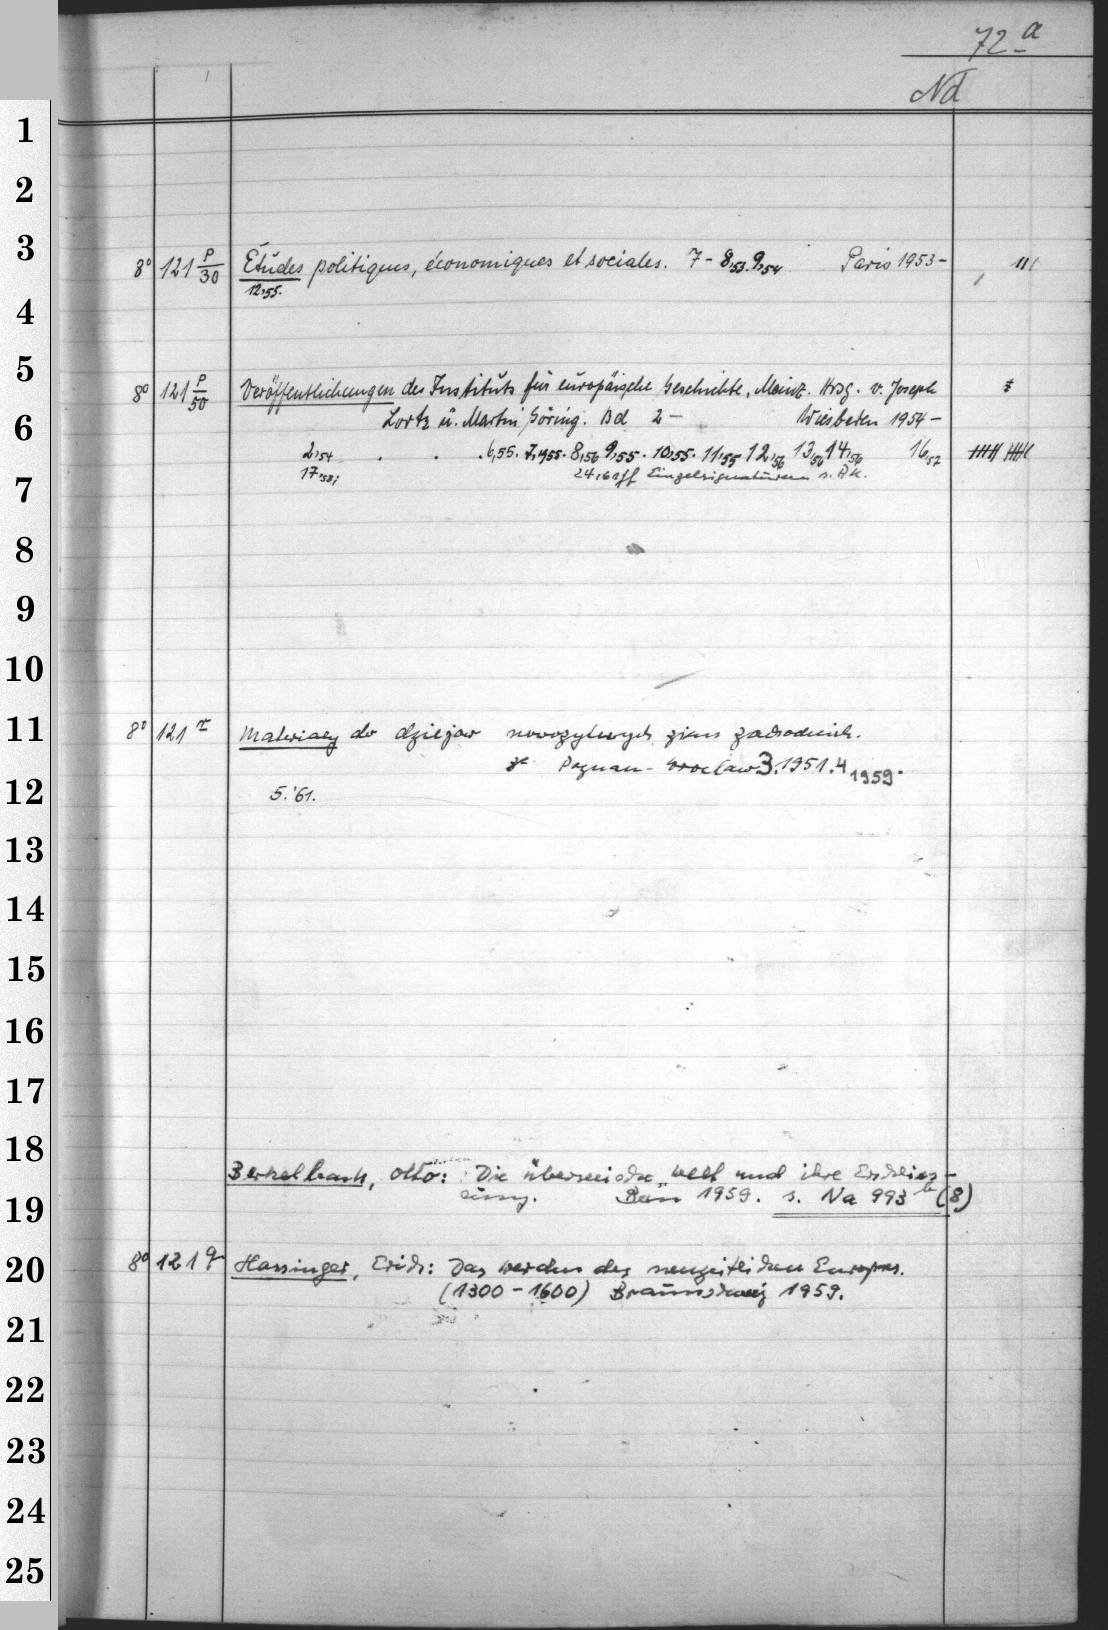 72a
Nd
1
2
3
8° 121 P/30 Études politiques, économiques et sociales. 7- 8,53. 9,54 Paris 1953-
12,55.
4
5
8° 121 P/50 Veröffentlichungen des Instituts für europäische Geschichte, Mainz. Hrsg. v. Joseph
6
Lortz u. Martin Göring. Bd 2- Wiesbaden 1954-
2,54 6,55. 7,55. 8,56 9,55. 10,55. 11,55 12,56 13,56 14,56 16,57
17,58; 24,61ff Einzelsignaturen s. AK.
7
8
9
10
11
8° 121 r Materiały do dziejów nowożytnych ziem zachodnich.
Poznań- Wrocław 3.1951.4 1959.
12
5.'61.
13
14
15
16
17
18
Berkelbach, Otto: Die überseeische Welt und ihre Erschlies-
19
sung. Bern 1959. s. Na 993 b (8)
20
8° 121 q Hassinger, Erich: Das Werden des neuzeitlichen Europas.
(1300-1600) Braunschweig 1959.
21
22
23
24
25